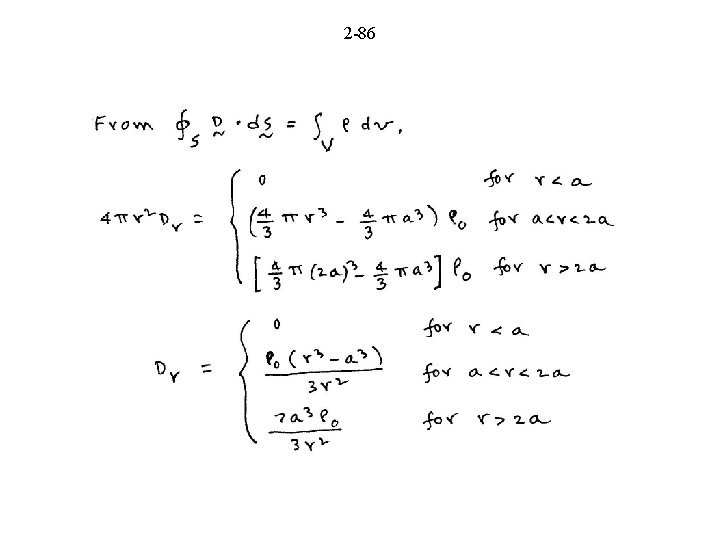 2-86
From ∮_S D̰ · dS̰ = ∫_V ρ dv,
4πr² D_r = { 0 for r < a
(4/3 πr³ - 4/3 πa³) ρ₀ for a<r<2a
[4/3 π(2a)³ - 4/3 πa³] ρ₀ for r > 2a
D_r = { 0 for r < a
ρ₀(r³ - a³)/3r² for a<r<2a
7a³ρ₀/3r² for r > 2a